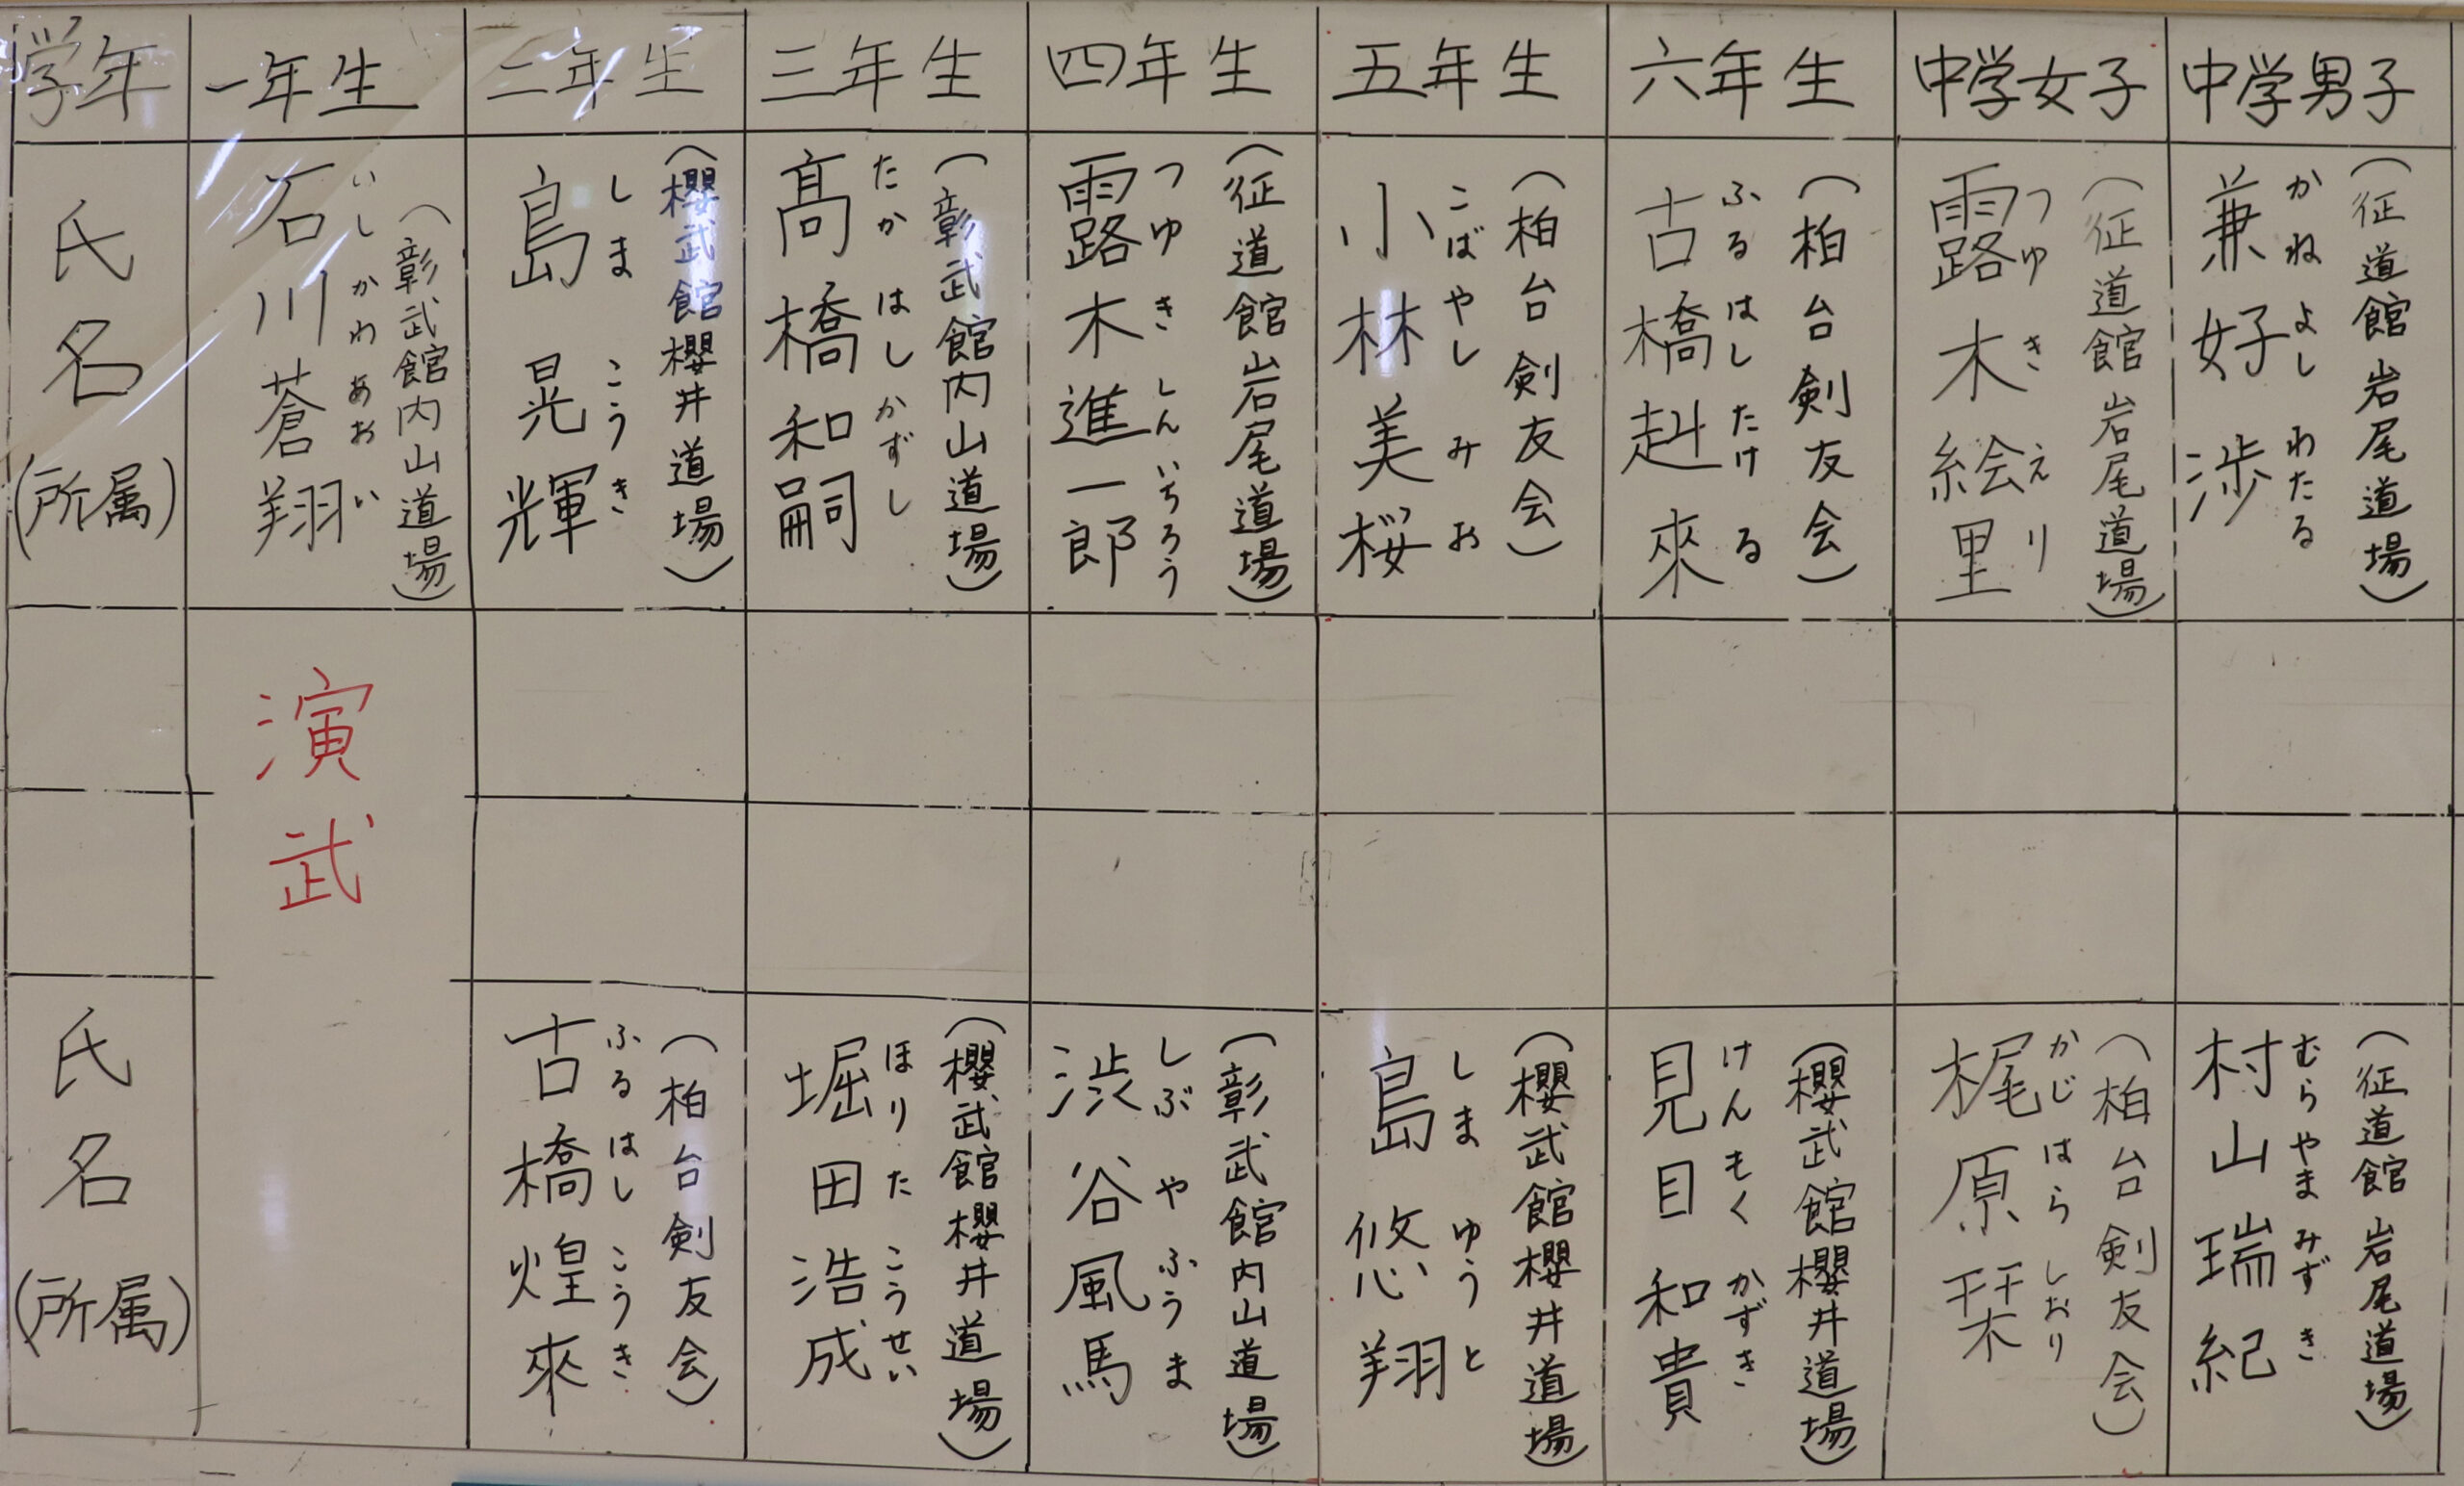 学年
一年生
二年生
三年生
四年生
五年生
六年生
中学女子
中学男子
氏名(所属)
(彰武館内山道場)
いしかわあおい
石川蒼翔
(櫻武館櫻井道場)
しまこうき
島晃輝
(彰武館内山道場)
たかはしかずし
髙橋和嗣
(征道館岩尾道場)
つゆきしんいちろう
露木進一郎
(柏台剣友会)
こばやしみお
小林美桜
(柏台剣友会)
ふるはしたける
古橋赳來
(征道館岩尾道場)
つゆきえり
露木絵里
(征道館岩尾道場)
かねよしわたる
兼好渉
演武
氏名(所属)
(柏台剣友会)
ふるはしこうき
古橋煌來
(櫻武館櫻井道場)
ほりたこうせい
堀田浩成
(彰武館内山道場)
しぶやふうま
渋谷風馬
(櫻武館櫻井道場)
しまゆうと
島悠翔
(櫻武館櫻井道場)
けんもくかずき
見目和貴
(柏台剣友会)
かじはらしおり
梶原栞
(征道館岩尾道場)
むらやまみずき
村山瑞紀